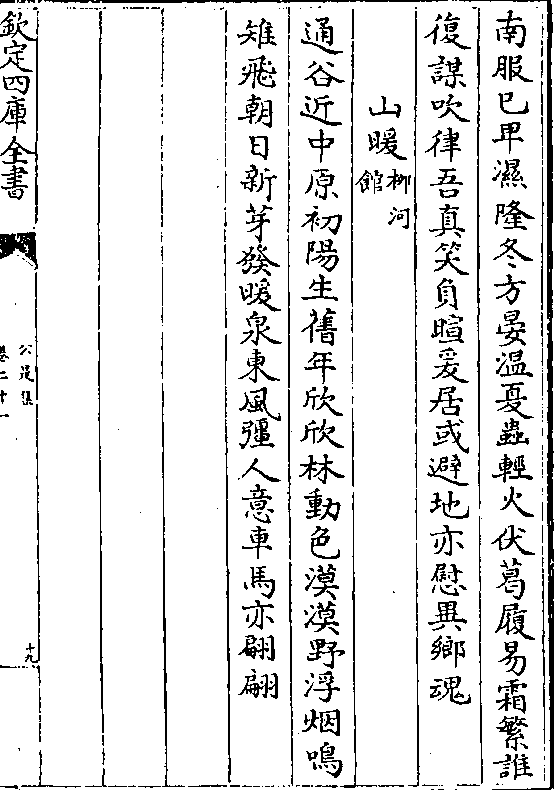 南服已卑濕隆冬方晏温憂蟲輕火伏葛履易霜繁誰
復謀吹律吾真笑負暄爰居或避地亦慰異鄉魂
山暖柳河館
通谷近中原初陽生舊年欣欣林動色漠漠野浮烟鳴
雉飛朝日新芽發暖泉東風彊人意車馬亦翩翩
欽定四庫全書
公是集
卷二十一
十九